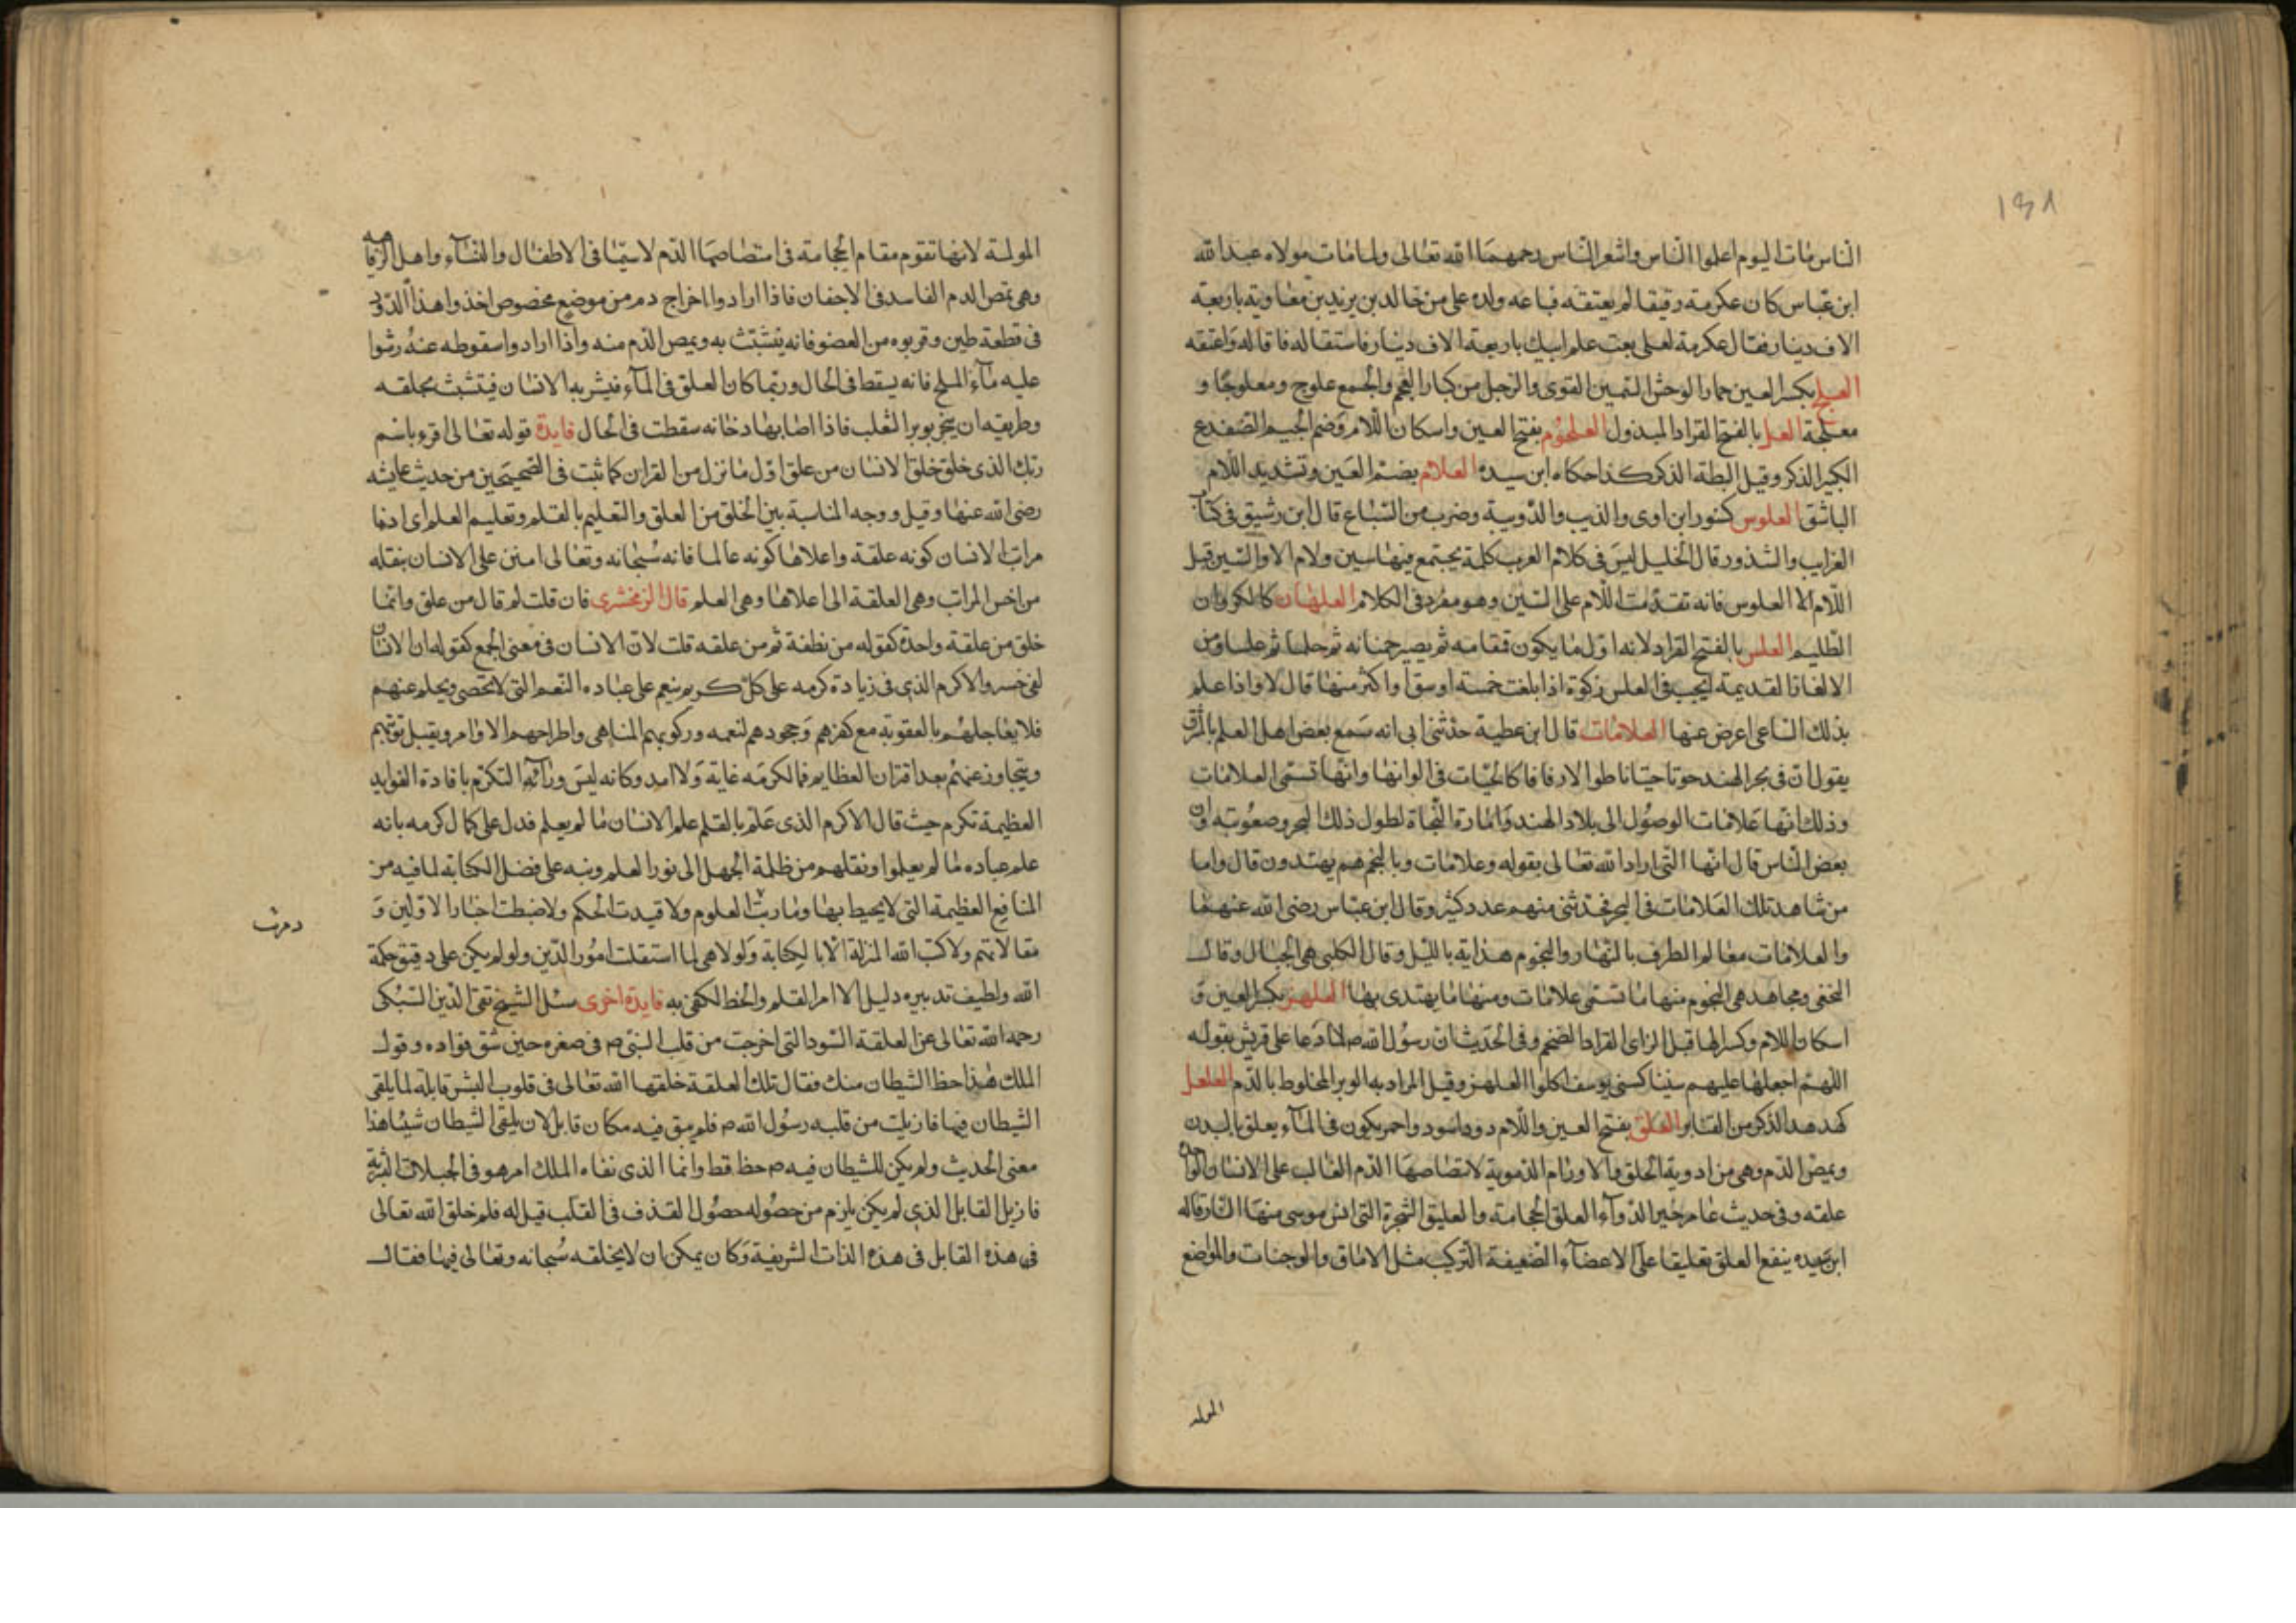 ١٤٨
الناس مات اليوم اعلم الناس واشعر الناس رحمهما الله تعالى ولما مات مولاه عبد الله
ابن عباس كان عكرمة رقيقا لم يعتقه فباعه ولده على من خالد بن يزيد بن معاوية باربعة
الاف دينار فقال عكرمة لعلى بعت علم ابيك باربعة الاف دينار فاستقاله فاقاله واعتقه
العلج بكسر العين حمار الوحش السمين القوى والرجل من كبار العجم والجمع علوج ومعلوجا و
معلجة العل بالفتح القراد المهزول العلجوم بفتح العين واسكان اللام وضم الجيم الضفدع
الكبير الذكر وقيل البطة الذكر كذا حكاه ابن سيده العلام بضم العين وتشديد اللام
الباشق العلوس كنور ابن اوى والذيب والدويبة وضرب من السباع قال ابن رشيق فى كتاب
الغرايب والشذور قال الخليل ليس فى كلام العرب كلمة يجتمع فيها سين ولام الا والسين قبل
اللام الا العلوس فانه تقدمت اللام على السين وهو مفرد فى الكلام العلهان كالكروان
الظليم العلس بالفتح القراد لانه اول ما يكون قمقامه ثم يصير حمنانه ثم حلما ثم علسا ومن
الالغاز القديمة ايجب فى العلس زكوة اذا بلغت خمسة اوسق او اكثر منها قال لا واذا علم
بذلك الساعى اعرض عنها العلامات قال ابن عطية حدثنى ابى انه سمع بعض اهل العلم بالمشرق
يقول ان فى بحر الهند حوتا حيتانا طوالا رقاقا كالحيات فى الوانها وانها تسمى العلامات
وذلك انها علامات الوصول الى بلاد الهند وامارة النجاة لطول ذلك البحر وصعوبته وان
بعض الناس قال انها التى اراد الله تعالى بقوله وعلامات وبالنجم هم يهتدون قال واما
من شاهد تلك العلامات فى البحر فحدثنى منهم عدد كثير وقال ابن عباس رضى الله عنهما
والعلامات معالم الطرق بالنهار والنجوم هداية بالليل وقال الكلبى هى الجبال وقال
النخعى ومجاهد هى النجوم منها ما تسمى علامات ومنها ما يهتدى بها العلهز بكسر العين و
اسكان اللام وكسر الها قبل الزاى القراد الضخم وفى الحديث ان رسول الله صم لما دعا على قريش بقوله
اللهم اجعلها عليهم سنينا كسنى يوسف اكلوا العلهز وقيل المراد به الوبر المخلوط بالدم العلعل
كهدهد الذكر من القنابر العلق بفتح العين واللام دود اسود واحمر يكون فى الماء يعلق بالبدن
ويمص الدم وهى من ادوية الحلق والاورام الدموية لامتصاصها الدم الغالب على الانسان الواحدة
علقه وفى حديث عامر خير الدواء العلق والحجامة والعليق الشجرة التى انس موسى منها النار قاله
ابن سيده ينفع العلق تعليقا على الاعضاء الضعيفة التركيب مثل الاماق والوجنات والمواضع
المولمه
المولمة لانها تقوم مقام الحجامة فى امتصاصها الدم لا سيما فى الاطفال والنساء واهل الرفاهيه
وهى تمص الدم الفاسد فى الاجفان فاذا ارادوا اخراج دم من موضع مخصوص اخذوا هذا الدود
فى قطعة طين وقربوه من العضو فانه يتشبث به ويمص الدم منه واذا ارادوا سقوطه عنه رشوا
عليه ماء الملح فانه يسقط فى الحال وربما كان العلق فى الماء فيشربه الانسان فيتشبث بحلقه
وطريقه ان يبخر بوبر الثعلب فاذا اصابها دخانه سقطت فى الحال فايدة قوله تعالى اقرء باسم
ربك الذى خلق خلق الانسان من علق اول ما نزل من القران كما ثبت فى الصحيحين من حديث عايشه
رضى الله عنها وقيل ووجه المناسبة بين الخلق من العلق والتعليم بالقلم وتعليم العلم اى ادنا
مراتب الانسان كونه علقة واعلاها كونه عالما فانه سبحانه وتعالى امتن على الانسان بنقله
من اخس المراتب وهى العلقة الى اعلاها وهى العلم قال الزمخشرى فان قلت لم قال من علق وانما
خلق من علقة واحدة كقوله من نطفة ثم من علقه قلت لان الانسان فى معنى الجمع كقوله ان الانسان
لفى خسر والاكرم الذى فى زيادة كرمه على كل كريم ينعم على عباده النعم التى لا تحصى ويحلم عنهم
فلا يعاجلهم بالعقوبة مع كفرهم وجحودهم لنعمه وركوبهم المناهى واطراحهم الاوامر ويقبل توبتهم
ويتجاوز عنهم بعد اقتران العظايم فما لكرمه غاية ولا امد وكانه ليس وراء التكرم بافادة الفوايد
العظيمة تكرم حيث قال الاكرم الذى علم بالقلم علم الانسان ما لم يعلم فدل على كمال كرمه بانه
علم عباده ما لم يعلموا ونقلهم من ظلمة الجهل الى نور العلم ونبه على فضل الكتابة لما فيه من
المنافع العظيمة التى لا يحيط بها وما ربت العلوم ولا قيدت الحكم ولا ضبطت اخبار الاولين و
مقالاتهم ولا كتب الله المنزلة الا بالكتابة ولولا هى لما استقلت امور الدين ولو لم يكن على دقيق حكمة
الله ولطيف تدبيره دليل الا امر القلم والخط لكفى به فايدة اخرى سئل الشيخ تقى الدين السبكى
رحمه الله تعالى عن العلقة السودا التى اخرجت من قلب النبى صم فى صغره حين شق فواده وقول
الملك هذا حظ الشيطان منك فقال تلك العلقة خلقها الله تعالى فى قلوب البشر قابلة لما يلقى
الشيطان فيها فازيلت من قلبه رسول الله صم فلم يبق فيه مكان قابل لان يلقى الشيطان شيئا هذا
معنى الحديث ولم يكن للشيطان فيه صم حظ قط وانما الذى نفاه الملك امر هو فى الجبلات البشرية
فازيل القابل الذى لم يكن يلزم من حصوله حصول القذف فى القلب قيل له فلم خلق الله تعالى
فى هذه القابل فى هذه الذات الشريفة وكان يمكن ان لا يخلقه سبحانه وتعالى فيها فقال